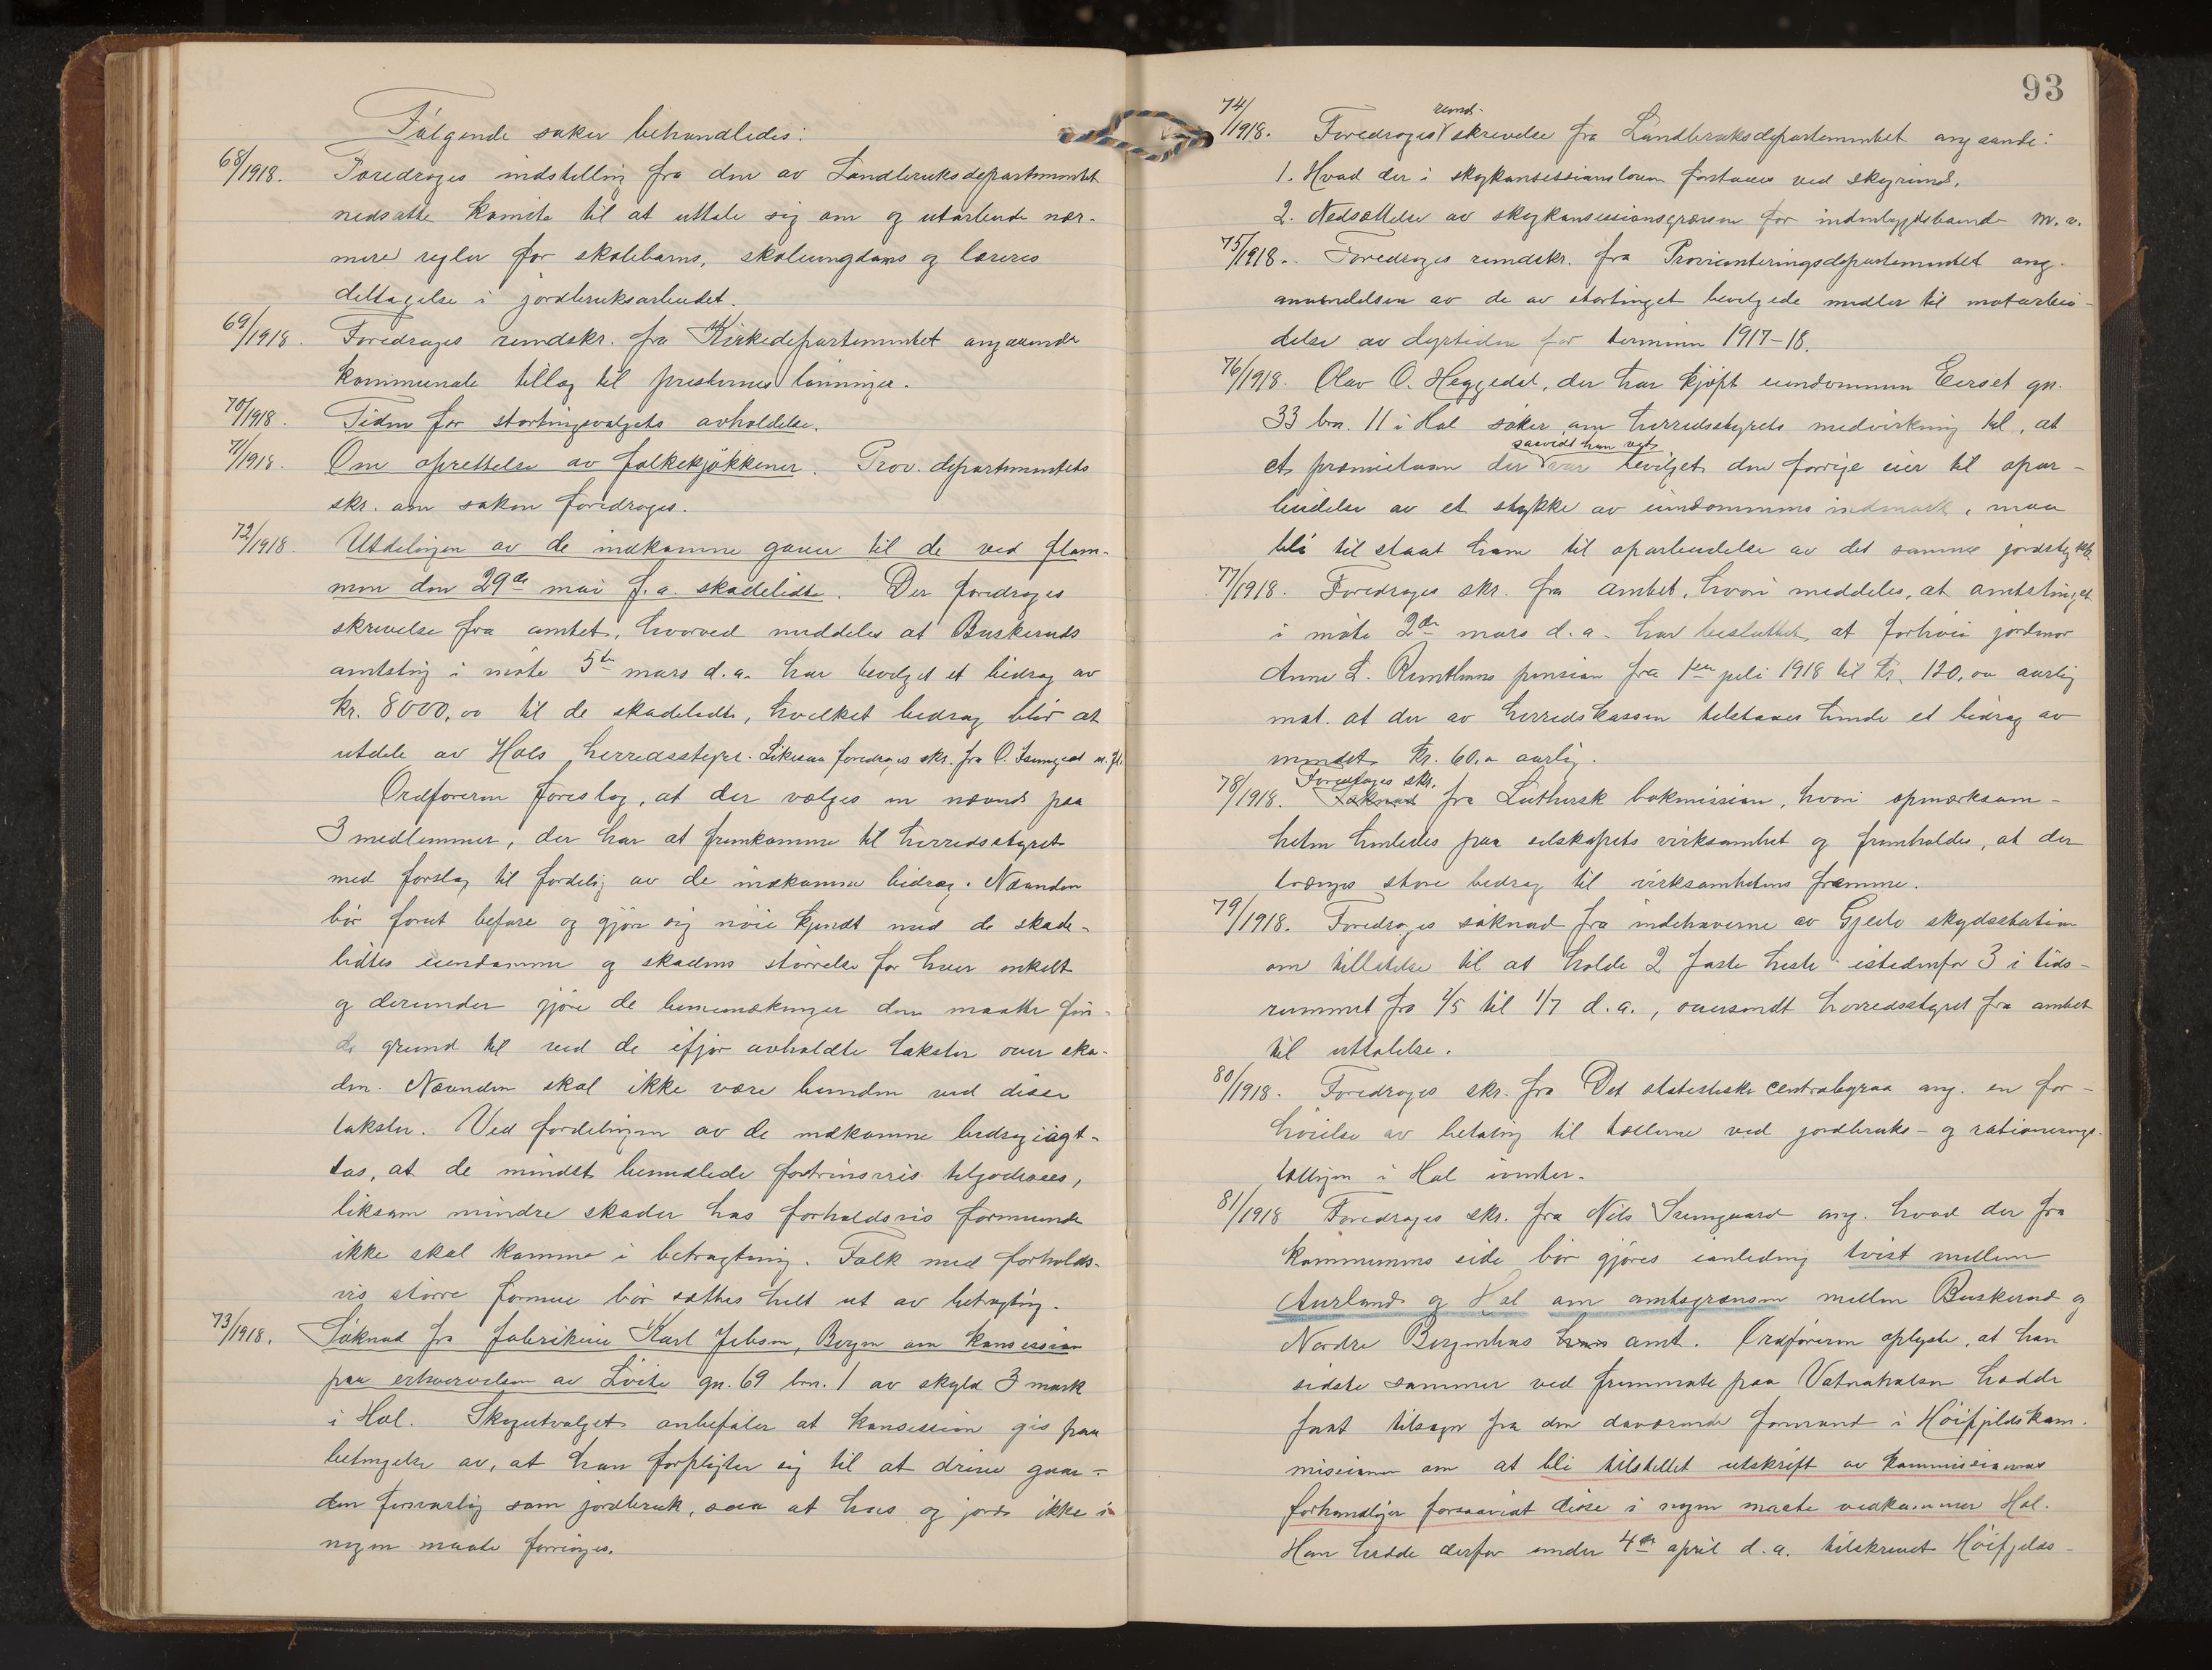 Følgende saker behandledes:
68/1918. Foredroges indstilling fra den av Landbruksdepartmentet
nedsatte komite til at uttale sig om og utarbeide nær-
mere regler for skolebarns, skoleungdoms og læreres
deltagelse i jordbruksarbeidet.
69/1918. Foredroges rundskr. fra Kirkedepartementet angaaende
kommunale tillæg til presternes lønninger.
70/1918. Tiden for stortingsvalgets avholdelse.
71/1918. Om oprettelse av folkekjøkkener. Prov. departementets
skr. om saken foredroges.
72/1918. Utdelingen av de indkomne gaver til de ved flom-
men den 29de mai f.a. skadelidte. Der foredroges
skrivelse fra amtet, hvorved meddeles at Buskeruds
amtsting i møte 5te mars d.a. har bevilget et bidrag av
kr. 8000,00 til de skadelidte, hvilket bidrag blir at
utdele av Hols herredsstyre. Likesaa foredroges skr. fra O. Sungard m. fl.
Ordføreren foreslog, at der vælges en nævnd paa
3 medlemmer, der har at fremkomme til herredsstyret
med forslag til fordelig av de indkomne bidrag. Nævnden
bør forut befare og gjøre sig nøie kjendt med de skade-
lidtes eiendomme og skadens størrelse for hver enkelt
og derunder gjøre de bemerkninger den maatte fin-
de grund til ved de ifjor avholdte takster over ska-
den. Nævnden skal ikke være bunden ved disse
takster. Ved fordelingen av de indkomne bidrag iagt-
tas, at de mindst bemidlede fortrinsvis tilgodesees,
liksom mindre skader hos forholdsvis formuende
ikke skal komme i betragtning. Folk med forholds-
vis større formue bør sættes helt ut av betragtng.
73/1918. Søknad fra fabrikeier Karl Jebsen, Bergen om konsession
paa erhvervelsen av Lvite gn. 69 brn. 1 av skyld 3 mark
i Hol. Skogutvalget anbefaler at konsession gis paa
betingelse av, at han forpligter sig til at drive gaar-
den forsvarlig som jordbruk, saa at hus og jord ikke i
nogen maate forringes.
93
74/1918. Foredroges rund- skrivelse fra Landbruksdepartementet angaaende:
1. Hvad der i skogkonsessionsloven forstaaes ved skogrund.
2. Nedsættelse av skogkonsessionsgrænsen for indenbygdsboende m.v.
75/1918. Foredroges rundskr. fra Provianteringsdepartementet ang.
anvendelsen av de av stortinget bevilgede midler til motarbei-
delse av dyrtiden for terminen 1917-18.
76/1918. Olav O. Heggedal, der har kjøpt eiendommen Eerset gn.
33 brn. 11 i Hol søker om herredsstyrets medvirkning til, at
et præmielaan der saavidt han vet var bevilget den forrige eier til opar-
beidelse av et stykke av eiendommens indmark, maa
bli til staat ham til oparbeidelse av det samme jordstykke
77/1918. Foredroges skr. fra amtet, hvori meddeles, at amtstinget
i møte 2den mars d.a. har besluttet at forhøie jordmor
Anne L. pension fra 1ste juli 1918 til kr. 120,00 aarlig
mot. at der av herredskassen tilstaaes hende et bidrag av
mindst kr. 60.00 aarlig.
78/1918. Foredroges skr. Søknad fra Luthersk bokmission, hvori opmerksom-
heten henledes paa selskapets virksomhet og fremholdes, at der
trænges store bidrag til virksomhetens fremme.
79/1918. Foredroges søknad fra indehaverne av Gjeilo skydsstation
om tilladelse til at holde 2 faste heste istedenfor 3 i tids-
rummet fra 1/5 til 1/7 d.a., oversendt herredsstyret fra amtet
til uttalelse.
80/1918. Foredroges skr. fra Det statistiske centralbyraa ang. en for-
høielse av betaling til tællerne ved jordbruks- og rationerings-
tællingen i Hol ivinter.
81/1918 Foredroges skr. fra Nils Sungaard ang. hvad der fra
kommunens side bør gjøres ianledning tvist mellem
Aurland og Hol om amtsgrænsen mellem Buskerud og
Nordre Bergenhus amt. Ordføreren oplyste, at han
sidste sommer ved fremmøte paa Vatnahalsen hadde
faat tilsagn fra den daværende formand i Høifjeldskom-
missionen om at bli tilstillet utskrift av kommissionens
forhandliger forsaavidt disse i nogen maate vedkommer Hol.
Han hadde derfor under 4de april d.a. tilskrevet Høifjelds-